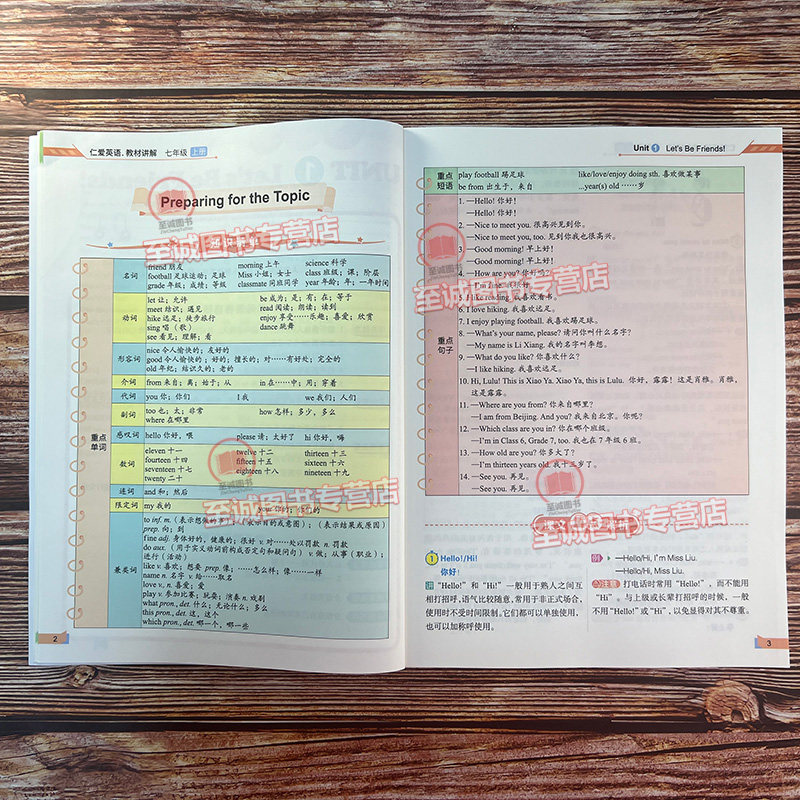 仁爱英语.教材讲解 七年级 上册
Preparing for the Topic
重点单词
名词
friend 朋友 morning 上午 science 科学
football 足球运动；足球 Miss 小姐；女士 class 班级；课；阶层
grade 年级；成绩；等级 classmate 同班同学 year 年龄；年；一年时间
动词
let 让；允许 be 成为；是；有；在；等于
meet 结识；遇见 read 阅读；朗读；读到
hike 远足；徒步旅行 enjoy 享受……乐趣；喜爱；欣赏
sing 唱（歌） dance 跳舞
see 看见；理解；看
形容词
nice 令人愉快的；友好的
good 令人愉快的；好的；擅长的；对……有好处；完全的
old 年纪；结识久的；老的
介词
from 来自；离；始于；从 in 在……中；用；穿着
代词
you 你；你们 I 我 we 我们；人们
副词
too 也；太；非常 how 怎样；多少，多么
where 在哪里
感叹词
hello 你好，喂 please 请；太好了 hi 你好，嗨
数词
eleven 十一 twelve 十二 thirteen 十三
fourteen 十四 fifteen 十五 sixteen 十六
seventeen 十七 eighteen 十八 nineteen 十九
twenty 二十
连词
and 和；然后
限定词
my 我的 your 你的；你们的
兼类词
to inf. m.（表示想做的事）；（表示目的或意图）；（表示结果或原因）
prep. 向；到
fine adj. 身体好的，健康的；很好 v. 对……处以罚款 n. 罚款
do aux.（用于实义动词前构成否定句和疑问句） v. 做；从事（职业）；
进行（活动）
like v. 喜欢；想要 prep. 像；……怎么样；像……一样
name n. 名字 v. 给……取名
love v., n. 喜爱；爱
play v. 参加比赛；玩耍；演奏 n. 戏剧
what pron., det. 什么；无论什么；多么
this pron., det. 这，这个
which pron., det. 哪一个，哪一些
2
Unit 1 Let's Be Friends!
重点短语
play football 踢足球 like/love/enjoy doing sth. 喜欢做某事
be from 出生于，来自 ...year(s) old ……岁
重点句子
1. —Hello! 你好！
—Hello! 你好！
2. —Nice to meet you. 很高兴见到你。
—Nice to meet you, too. 见到你我也很高兴。
3. —Good morning! 早上好！
—Good morning! 早上好！
4. —How are you? 你好吗？
—I'm fine. 我很好。
5. I like reading. 我喜欢看书。
6. I love hiking. 我喜欢远足。
7. I enjoy playing football. 我喜欢踢足球。
8. —What's your name, please? 请问你叫什么名字？
—My name is Li Xiang. 我的名字叫李想。
9. —What do you like? 你喜欢什么？
—I like hiking. 我喜欢远足。
10. Hi, Lulu! This is Xiao Ya. Xiao Ya, this is Lulu. 你好，露露！这是肖雅。肖雅，
这是露露。
11. —Where are you from? 你来自哪里？
—I am from Beijing. And you? 我来自北京。你呢？
12. —Which class are you in? 你在哪个班级。
—I'm in Class 6, Grade 7, too. 我也在 7 年级 6 班。
13. —How old are you? 你多大了？
—I'm thirteen years old. 我十三岁了。
14. —See you. 再见。
—See you. 再见。
1 Hello!/Hi!
你好！
讲 “Hello!”和“Hi!”一般用于熟人之间互
相打招呼，语气比较随意，常用于非正式场合，
使用时不受时间限制。它们都可以单独使用，
也可以加称呼使用。
例 —Hello/Hi, I'm Miss Liu.
—Hello/Hi, Miss Liu.
注意 打电话时常用“Hello!”，而不能用
“Hi”。与上级或长辈打招呼的时候，一般
不用“Hello!”或“Hi”，以免显得对其不尊重。
3
至诚图书
至诚图书专营店
至诚图书
至诚图书专营店
至诚图书
至诚图书专营店
至诚图书
至诚图书专营店